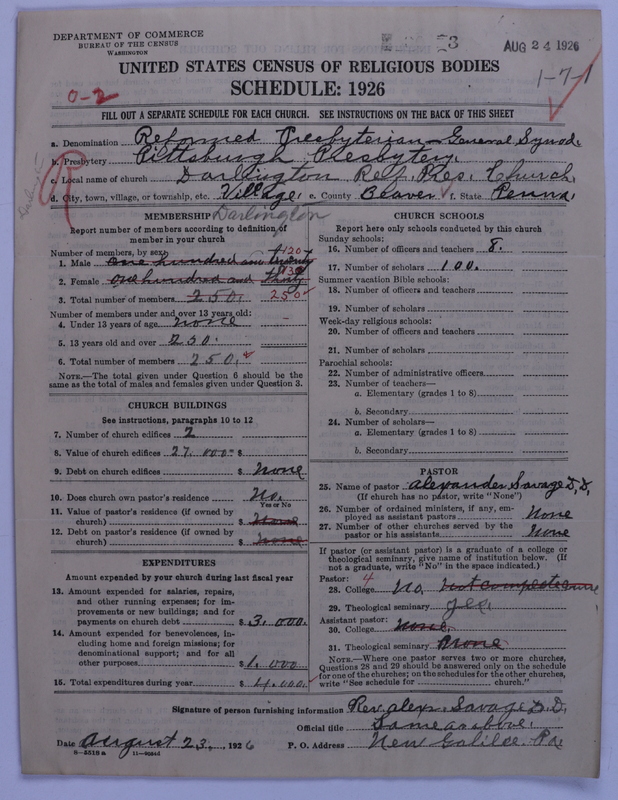 DEPARTMENT OF COMMERCE
BUREAU OF THE CENSUS
WASHINGTON
AUG 24 1926
1-7-1
UNITED STATES CENSUS OF RELIGIOUS BODIES
SCHEDULE: 1926
0-2
FILL OUT A SEPARATE SCHEDULE FOR EACH CHURCH. SEE INSTRUCTIONS ON THE BACK OF THIS SHEET
a. Denomination Reformed Presbyterian General Synod.
b. Presbytery Pittsburgh Presbytery.
c. Local name of church Darlington Ref. Pres. Church.
d. City, town, village, or township, etc. Village. e. County Beaver f. State Penna.
Darlington
R
MEMBERSHIP Darlington
Report number of members according to definition of
member in your church
Number of members, by sex:
1. Male one hundred and twenty 120
2. Female one hundred and thirty 130
3. Total number of members 250. 250
Number of members under and over 13 years old:
4. Under 13 years of age none
5. 13 years old and over 250.
6. Total number of members 250.
NOTE.—The total given under Question 6 should be
same as the total of males and females given under Question 3.
CHURCH BUILDINGS
See instructions, paragraphs 10 to 12
7. Number of church edifices 2
8. Value of church edifices 27,000 $
9. Debt on church edifices $ None
10. Does church own pastor's residence No.
Yes or No
11. Value of pastor's residence (if owned by
church) $ None
12. Debt on pastor's residence (if owned by
church) $ None
EXPENDITURES
Amount expended by your church during last fiscal year
13. Amount expended for salaries, repairs,
and other running expenses; for im-
provements or new buildings; and for
payments on church debt $ 3,000.
14. Amount expended for benevolences, in-
cluding home and foreign missions; for
denominational support; and for all
other purposes $ 1,000
15. Total expenditures during year $ 4,000.
CHURCH SCHOOLS
Report here only schools conducted by this church
Sunday schools:
16. Number of officers and teachers 8.
17. Number of scholars 100.
Summer vacation Bible schools:
18. Number of officers and teachers
19. Number of scholars
Week-day religious schools:
20. Number of officers and teachers
21. Number of scholars
Parochial schools:
22. Number of administrative officers
23. Number of teachers—
a. Elementary (grades 1 to 8)
b. Secondary
24. Number of scholars—
a. Elementary (grades 1 to 8)
b. Secondary
PASTOR
25. Name of pastor Alexander Savage D.D.
(If church has no pastor, write "None")
26. Number of ordained ministers, if any, em-
ployed as assistant pastors None
27. Number of other churches served by the
pastor or his assistants None
If pastor (or assistant pastor) is a graduate of a college or
theological seminary, give name of institution below. (If
not a graduate, write "No" in the space indicated.)
Pastor: 4
28. College No,
29. Theological seminary yes.
Assistant pastor:
30. College None
31. Theological seminary None
NOTE.—Where one pastor serves two or more churches,
Questions 28 and 29 should be answered only on the schedule
for one of the churches; on the schedules for the other churches,
write "See schedule for church."
Signature of person furnishing information Rev. Alex. Savage D.D.
Official title Same as above.
Date August 23, 1926 P. O. Address New Galilee. Pa.